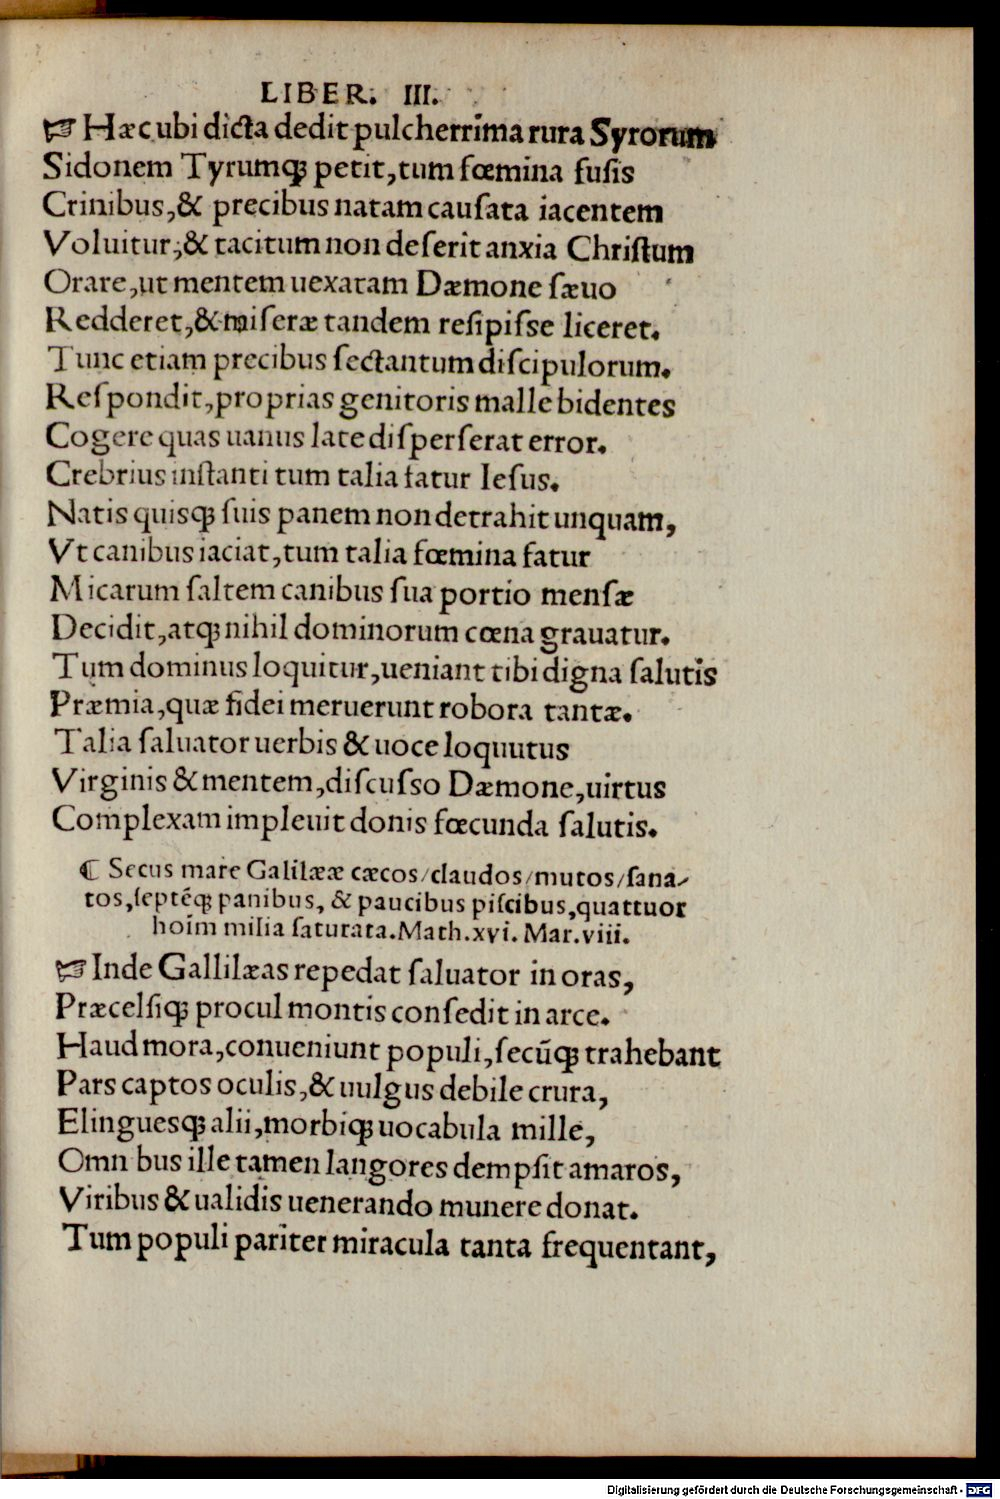 LIBER. III.
☞ Hæc ubi dicta dedit pulcherrima rura Syrorum
Sidonem Tyrumq́; petit, tum fœmina fuſis
Crinibus, & precibus natam cauſata iacentem
Voluitur, & tacitum non deſerit anxia Chriſtum
Orare, ut mentem uexatam Dæmone ſæuo
Redderet, & miſeræ tandem reſipiſſe liceret.
Tunc etiam precibus ſectantum diſcipulorum.
Reſpondit, proprias genitoris malle bidentes
Cogere quas uanus late diſperſerat error.
Crebrius inſtanti tum talia fatur Ieſus.
Natis quisq; ſuis panem non detrahit unquam,
Vt canibus iaciat, tum talia fœmina fatur
Micarum ſaltem canibus ſua portio menſæ
Decidit, atq; nihil dominorum cœna grauatur.
Tum dominus loquitur, ueniant tibi digna ſalutis
Præmia, quæ fidei meruerunt robora tantæ.
Talia ſaluator uerbis & uoce loquutus
Virginis & mentem, diſcuſſo Dæmone, uirtus
Complexam impleuit donis fœcunda ſalutis.
¶ Secus mare Galilææ cæcos/claudos/mutos/ſana-
tos, ſeptẽq; panibus, & paucibus piſcibus, quattuor
hoim milia ſaturata. Math. xvi. Mar. viii.
☞ Inde Gallilæas repedat ſaluator in oras,
Præcelſiq; procul montis conſedit in arce.
Haud mora, conueniunt populi, ſecũq; trahebant
Pars captos oculis, & uulgus debile crura,
Elinguesq; alii, morbiq; uocabula mille,
Omn bus ille tamen langores dempſit amaros,
Viribus & ualidis uenerando munere donat.
Tum populi pariter miracula tanta frequentant,
Digitalisierung gefördert durch die Deutsche Forschungsgemeinschaft - DFG